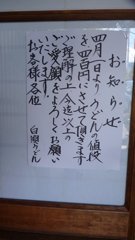 お知らせ
四月一日よりうどんの値段
を四百円にさせて頂きます
ご理解の上今迄以上の
ご愛顧をよろしくお願い
いたします
お客様各位
白川うどん